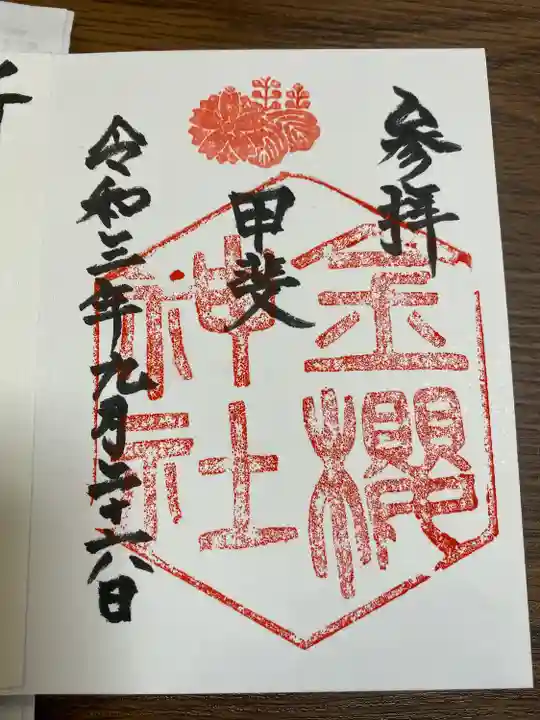 参拝
甲斐
金櫻
神社
令和三年九月二十六日